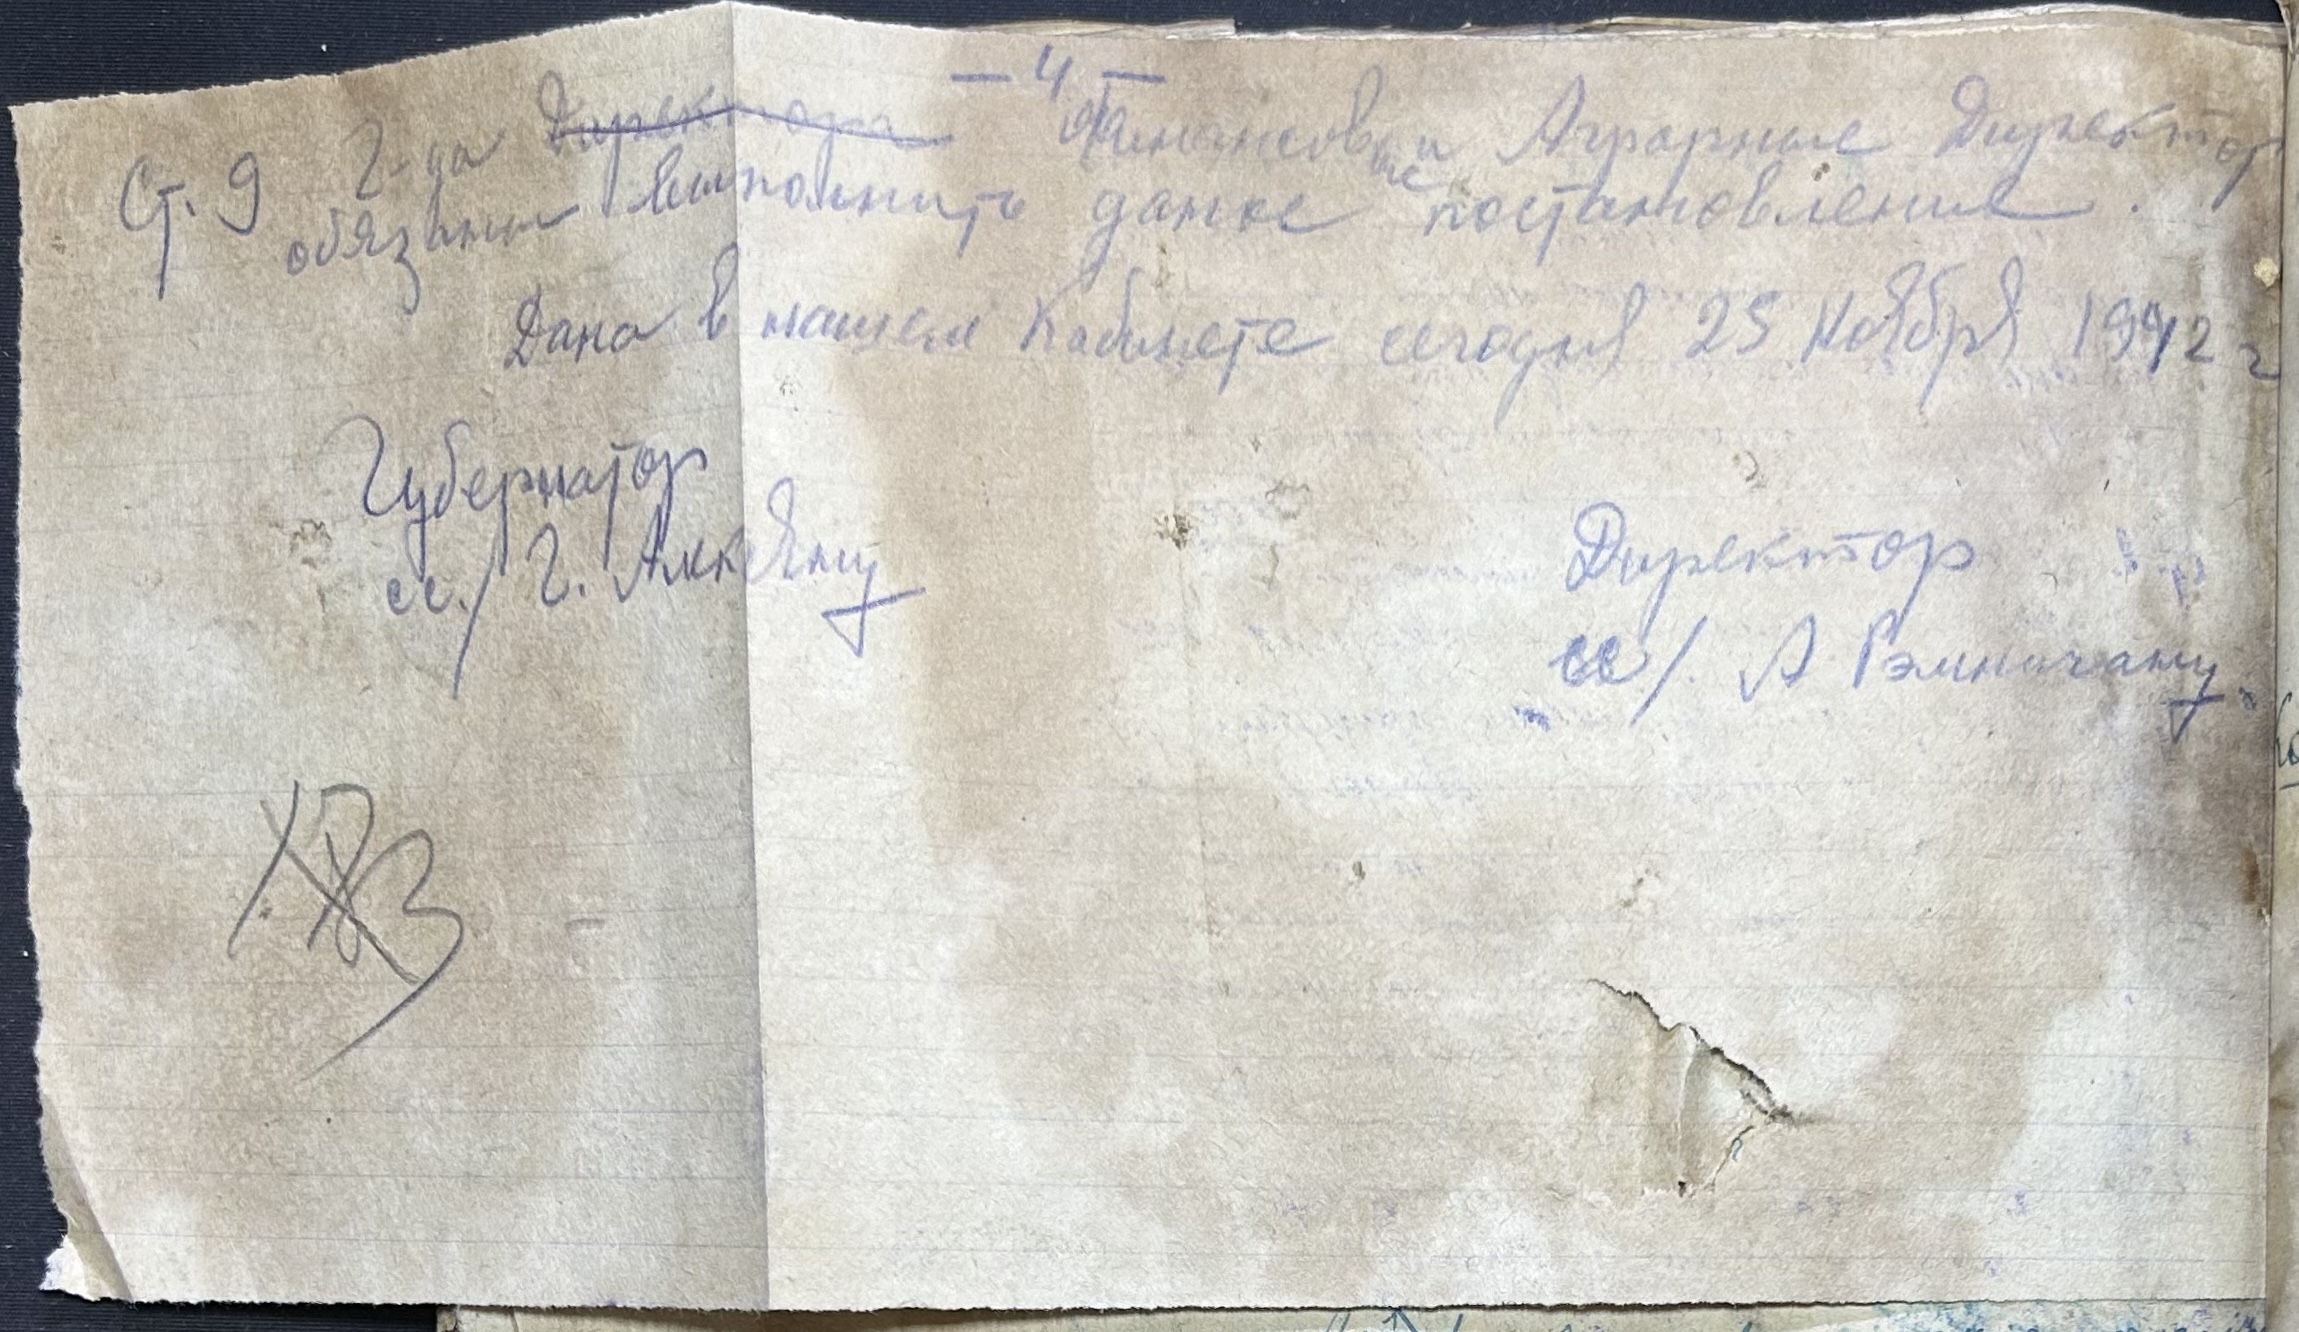 — 4 —
Ст. 9 Г-да Директора Финансовые и Аграрные Директор
обязаны выполнить даное постановление.
Дано в нашем Кабинете сегодня 25 Ноября 1942 г
Губернатор
сс./ Г. Алексяну
Директор
сс/. А Рэмничану